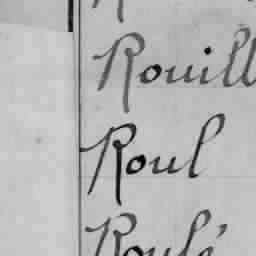 Rouill
Roul
Roulé